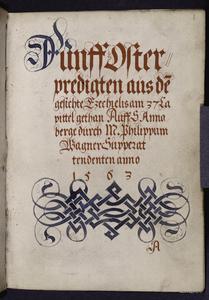 Fünff Oster⸗
predigten aus dē
gesichte Ezechielis am 37 Ca
pittel gethan Auff S. Anna
berge durch M. Philippum
Wagner Suppezat
tendenten anno
1563
A